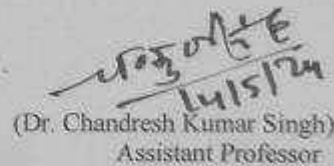 14/5/24
(Dr. Chandresh Kumar Singh)
Assistant Professor